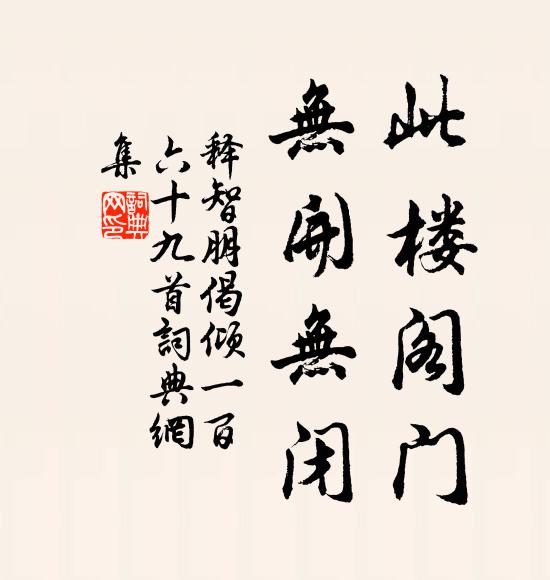 此楼阁门
無開無闭
释智朋偈倾一百
六十九首詞典網
集
詞典
网印